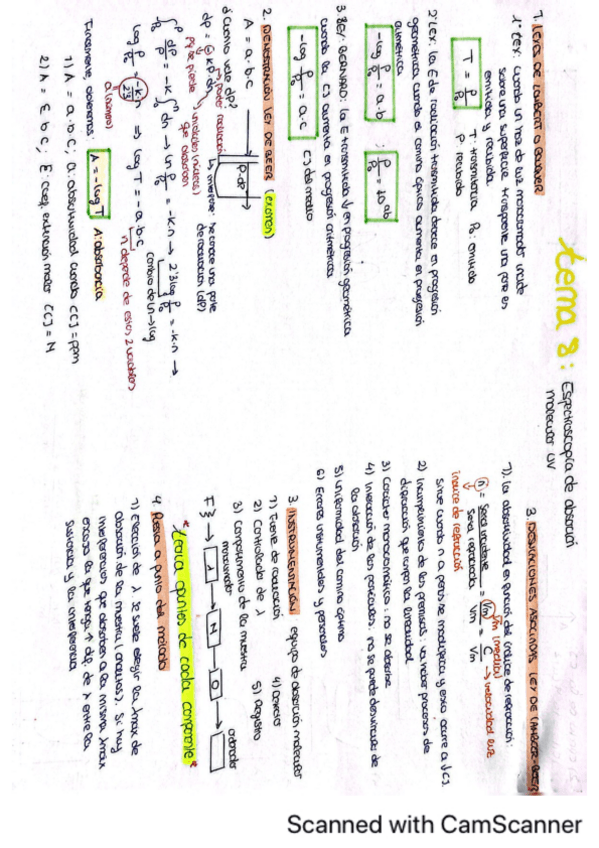 tema 8: Espectroscopía de absorción
molecular UV
1. LEYES DE LAMBERT O BOUGUER
1ª LEY: cuando un haz de luz monocromador incide
sobre una superficie trasparente una parte es
emitida y recibida.
T = P/P₀
T: trasmitancia P₀: emitida
P: recibida
2ª LEY: la E de radiación trasmitida decrece en progresión
geométrica cuando el camino óptico aumenta en progresión
aritmética
-log P/P₀ = a.b ; P/P₀ = 10^ab
3. LEY BERNARD: la E trasmitida ↓ en progresión geométrica
cuando la [] aumenta en progresión aritmética
-log P/P₀ = a.c [] de medio
2. DEMOSTRACIÓN LEY DE BEER (examen)
A = a.b.c
¿Cuánto vale dP?
P-dP
dP = -k P dn
→ poder radiación
pq se pierde
unidades (número)
que absorben
↳ inverteme: se conoce una parte
de radiación (dP)
∫ dP/P = -k ∫ dn → ln P/P₀ = -k.n → 2'3 log P/P₀ = -k.n →
cambio de ln→log
log P/P₀ = -k/2'3 n ⇒ log T = -a.b.c
a (número)
n depende de estas 2 variables
Finalmente, obtenemos: A = -log T A: absorbancia
1) A = a.b.c; a: absortividad cuando [C] = ppm
2) A = ε b c; ε: coef. extinción molar [C] = M
3. DESVIACIONES ASOCIADAS LEY DE LAMBERT-BEER
1). la absortividad en función del índice de refracción:
n = Senα incidente / Senα refractada = Vm / Vm = C / Vm
Vm (medio)
→ velocidad luz
índice de refracción
sirve cuando n a penas se modifique y esto ocurre a ↓[].
2) Incumplimiento de las premisas: va haber procesos de
dispersión que rompen la linealidad
3) Carácter monocromático: no se observe
4) Interacción de las partículas, no se puede desvincular de
la absorción
5) uniformidad del camino óptico
6) Errores instrumentales y personales
3. INSTRUMENTACIÓN: equipo de absorción molecular
1) Fuente de radiación
2) Controlador de λ
3) Compartimento de la muestra
4) Detector
5) Registro
monocromador
ordenador
F → λ → M → D →
*teoria apuntes de cada componente*
4. Puesta a punto del método
1) Elección de λ: se suele elegir la λmax de
absorción de la muestra (analitos). Si hay
interferencias que absorben a la misma λmax
escoja la que tenga ↑ dif. de λ entre la
sustancia y la interferencia
Scanned with CamScanner